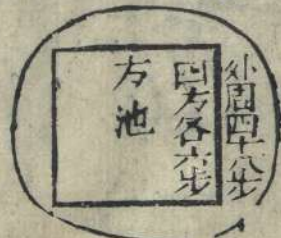 外周四十八步
四方各六步
方池